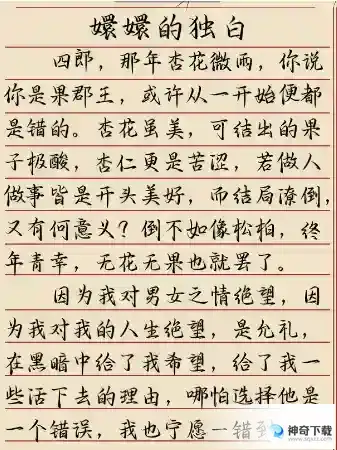 嬛嬛的独白
四郎，那年杏花微雨，你说
你是果郡王，或许从一开始便都
是错的。杏花虽美，可结出的果
子极酸，杏仁更是苦涩，若做人
做事皆是开头美好，而结局潦倒，
又有何意义？倒不如像松柏，终
年青幸，无花无果也就罢了。
因为我对男女之情绝望，因
为我对我的人生绝望，是允礼，
在黑暗中给了我希望，给了我一
些活下去的理由，哪怕选择他是
一个错误，我也宁愿一错到
神奇下载